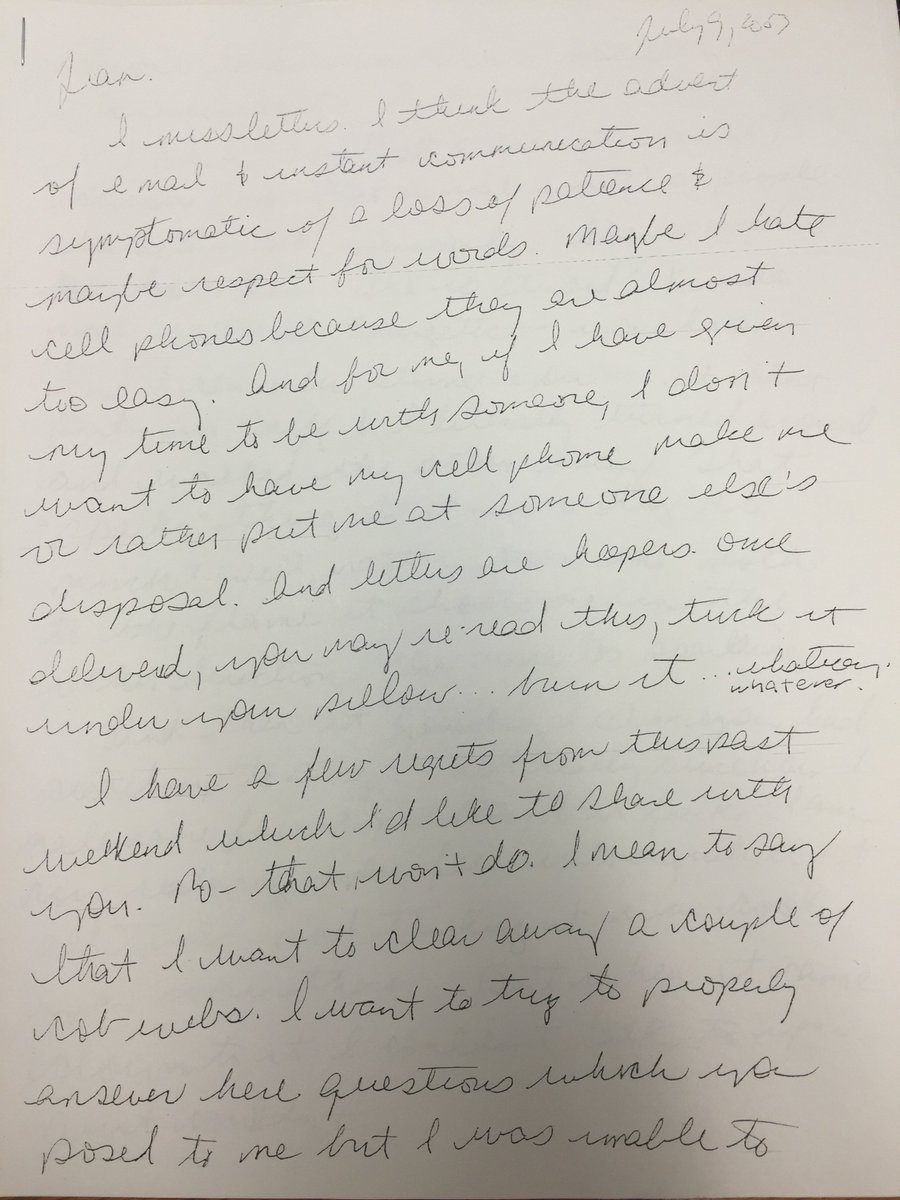 July 9, 2003
I miss letters. I think the advent
of email & instant communication is
symptomatic of a loss of patience &
maybe respect for words. Maybe I hate
cell phones because they are almost
too easy. And for me, if I have given
my time to be with someone, I don't
want to have my cell phone make me
or rather put me at someone else's
disposal. And letters are keepers. once
delivered, you may re-read this, tuck it
under your pillow... burn it...
whatever.
I have a few regrets from this past
weekend which I'd like to share with
you. No - that won't do. I mean to say
that I want to clear away a couple of
cob webs. I want to try to properly
answer here questions which you
posed to me but I was unable to